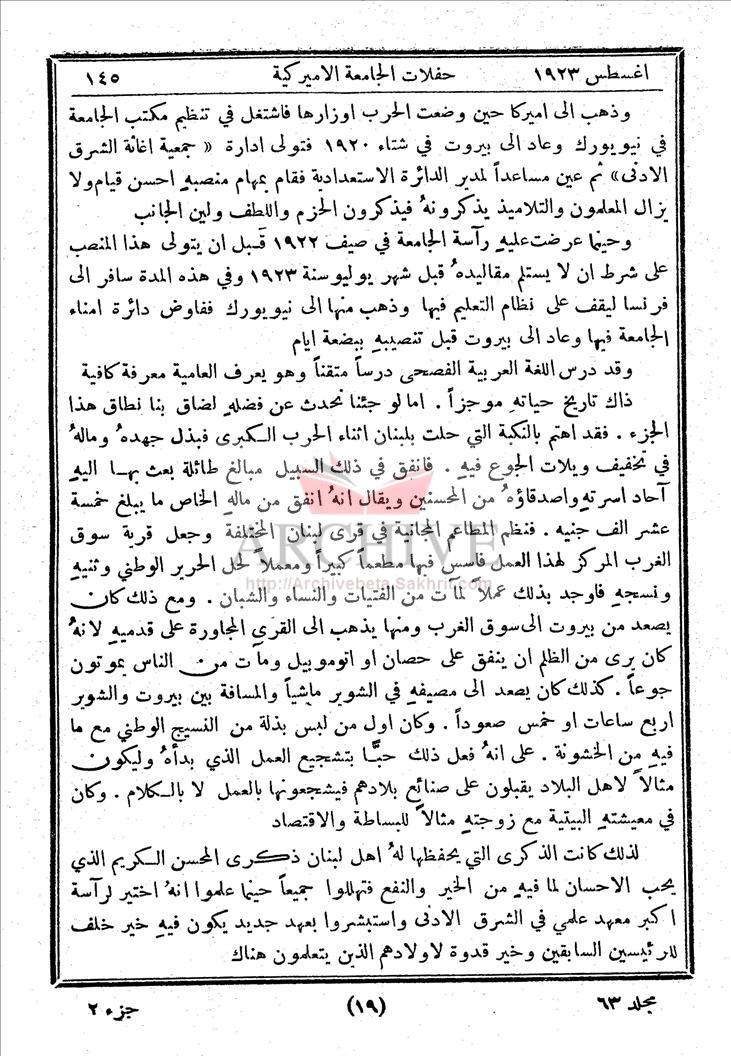 اغسطس ١٩٢٣ حفلات الجامعة الاميركية ١٤٥
وذهب الى اميركا حين وضعت الحرب اوزارها فاشتغل في تنظيم مكتب الجامعة
في نيويورك وعاد الى بيروت في شتاء ١٩٢٠ فتولى ادارة « جمعية اغاثة الشرق
الادنى » ثم عين مساعداً لمدير الدائرة الاستعدادية فقام بمهام منصبهِ احسن قيام ولا
يزال المعلمون والتلاميذ يذكرونهُ فيذكرون الحزم واللطف ولين الجانب
وحينما عرضت عليهِ رآسة الجامعة في صيف ١٩٢٢ قَبل ان يتولى هذا المنصب
على شرط ان لا يستلم مقاليدهُ قبل شهر يوليو سنة ١٩٢٣ وفي هذه المدة سافر الى
فرنسا ليقف على نظام التعليم فيها وذهب منها الى نيويورك ففاوض دائرة امناء
الجامعة فيها وعاد الى بيروت قبل تنصيبهِ ببضعة ايام
وقد درس اللغة العربية الفصحى درساً متقناً وهو يعرف العامية معرفة كافية
ذاك تاريخ حياتهِ موجزاً . اما لو جئنا نحدث عن فضلهِ لضاق بنا نطاق هذا
الجزء . فقد اهتم بالنكبة التي حلت بلبنان اثناء الحرب الكبرى فبذل جهدهُ ومالهُ
في تخفيف ويلات الجوع فيهِ . فانفق في ذلك السبيل مبالغ طائلة بعث بها اليهِ
آحاد اسرتهِ واصدقاؤهُ من المحسنين ويقال انهُ انفق من مالهِ الخاص ما يبلغ خمسة
عشر الف جنيه . فنظم المطاعم المجانية في قرى لبنان المختلفة وجعل قرية سوق
الغرب المركز لهذا العمل فاسس فيها مطعماً كبيراً ومعملاً لحل الحرير الوطني وثنيهِ
ونسجهِ فاوجد بذلك عملاً لمآت من الفتيات والنساء والشبان . ومع ذلك كان
يصعد من بيروت الى سوق الغرب ومنها يذهب الى القرى المجاورة على قدميهِ لانهُ
كان يرى من الظلم ان ينفق على حصان او اتوموبيل ومآت من الناس يموتون
جوعاً . كذلك كان يصعد الى مصيفهِ في الشوير ماشياً والمسافة بين بيروت والشوير
اربع ساعات او خمس صعوداً . وكان اول من لبس بذلة من النسيج الوطني مع ما
فيهِ من الخشونة . على انهُ فعل ذلك حبًّا بتشجيع العمل الذي بدأهُ وليكون
مثالاً لاهل البلاد يقبلون على صنائع بلادهم فيشجعونها بالعمل لا بالكلام . وكان
في معيشتهِ البيتية مع زوجتهِ مثالاً للبساطة والاقتصاد
لذلك كانت الذكرى التي يحفظها لهُ اهل لبنان ذكرى المحسن الكريم الذي
يحب الاحسان لما فيهِ من الخير والنفع فتهللوا جميعاً حينما علموا انهُ اختير لرآسة
اكبر معهد علمي في الشرق الادنى واستبشروا بعهد جديد يكون فيهِ خير خلف
للرئيسين السابقين وخير قدوة لاولادهم الذين يتعلمون هناك
جزء ٢ (١٩) مجلد ٦٣
ARCHIVE
http://Archivebeta.Sakhrit.com